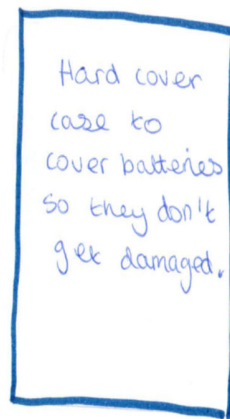 Hard cover
case to
cover batteries
so they don't
get damaged.